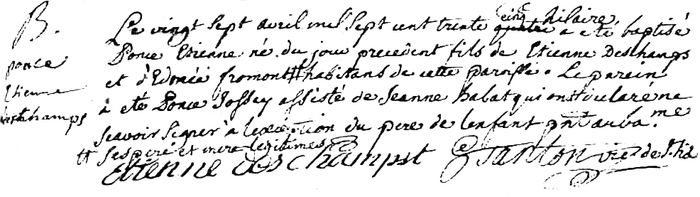 B.
ponce
Etienne
deschamps
Le vingt sept avril mil sept cent trente cinq hilaire
quatre a eté baptisé
Ponce Etienne né du jour precedent fils de Etienne Deschamps
et d'Edmée fromont # habitans de cette parisse. Le parein
a eté Ponce Jossey assisté de Jeanne Babat qui ont declaré ne
scavoir signer a l'exception du pere de l'enfant pnt au ba.me
# ses pere et mere legitimes
Etienne deschampst Tanton vic. de St